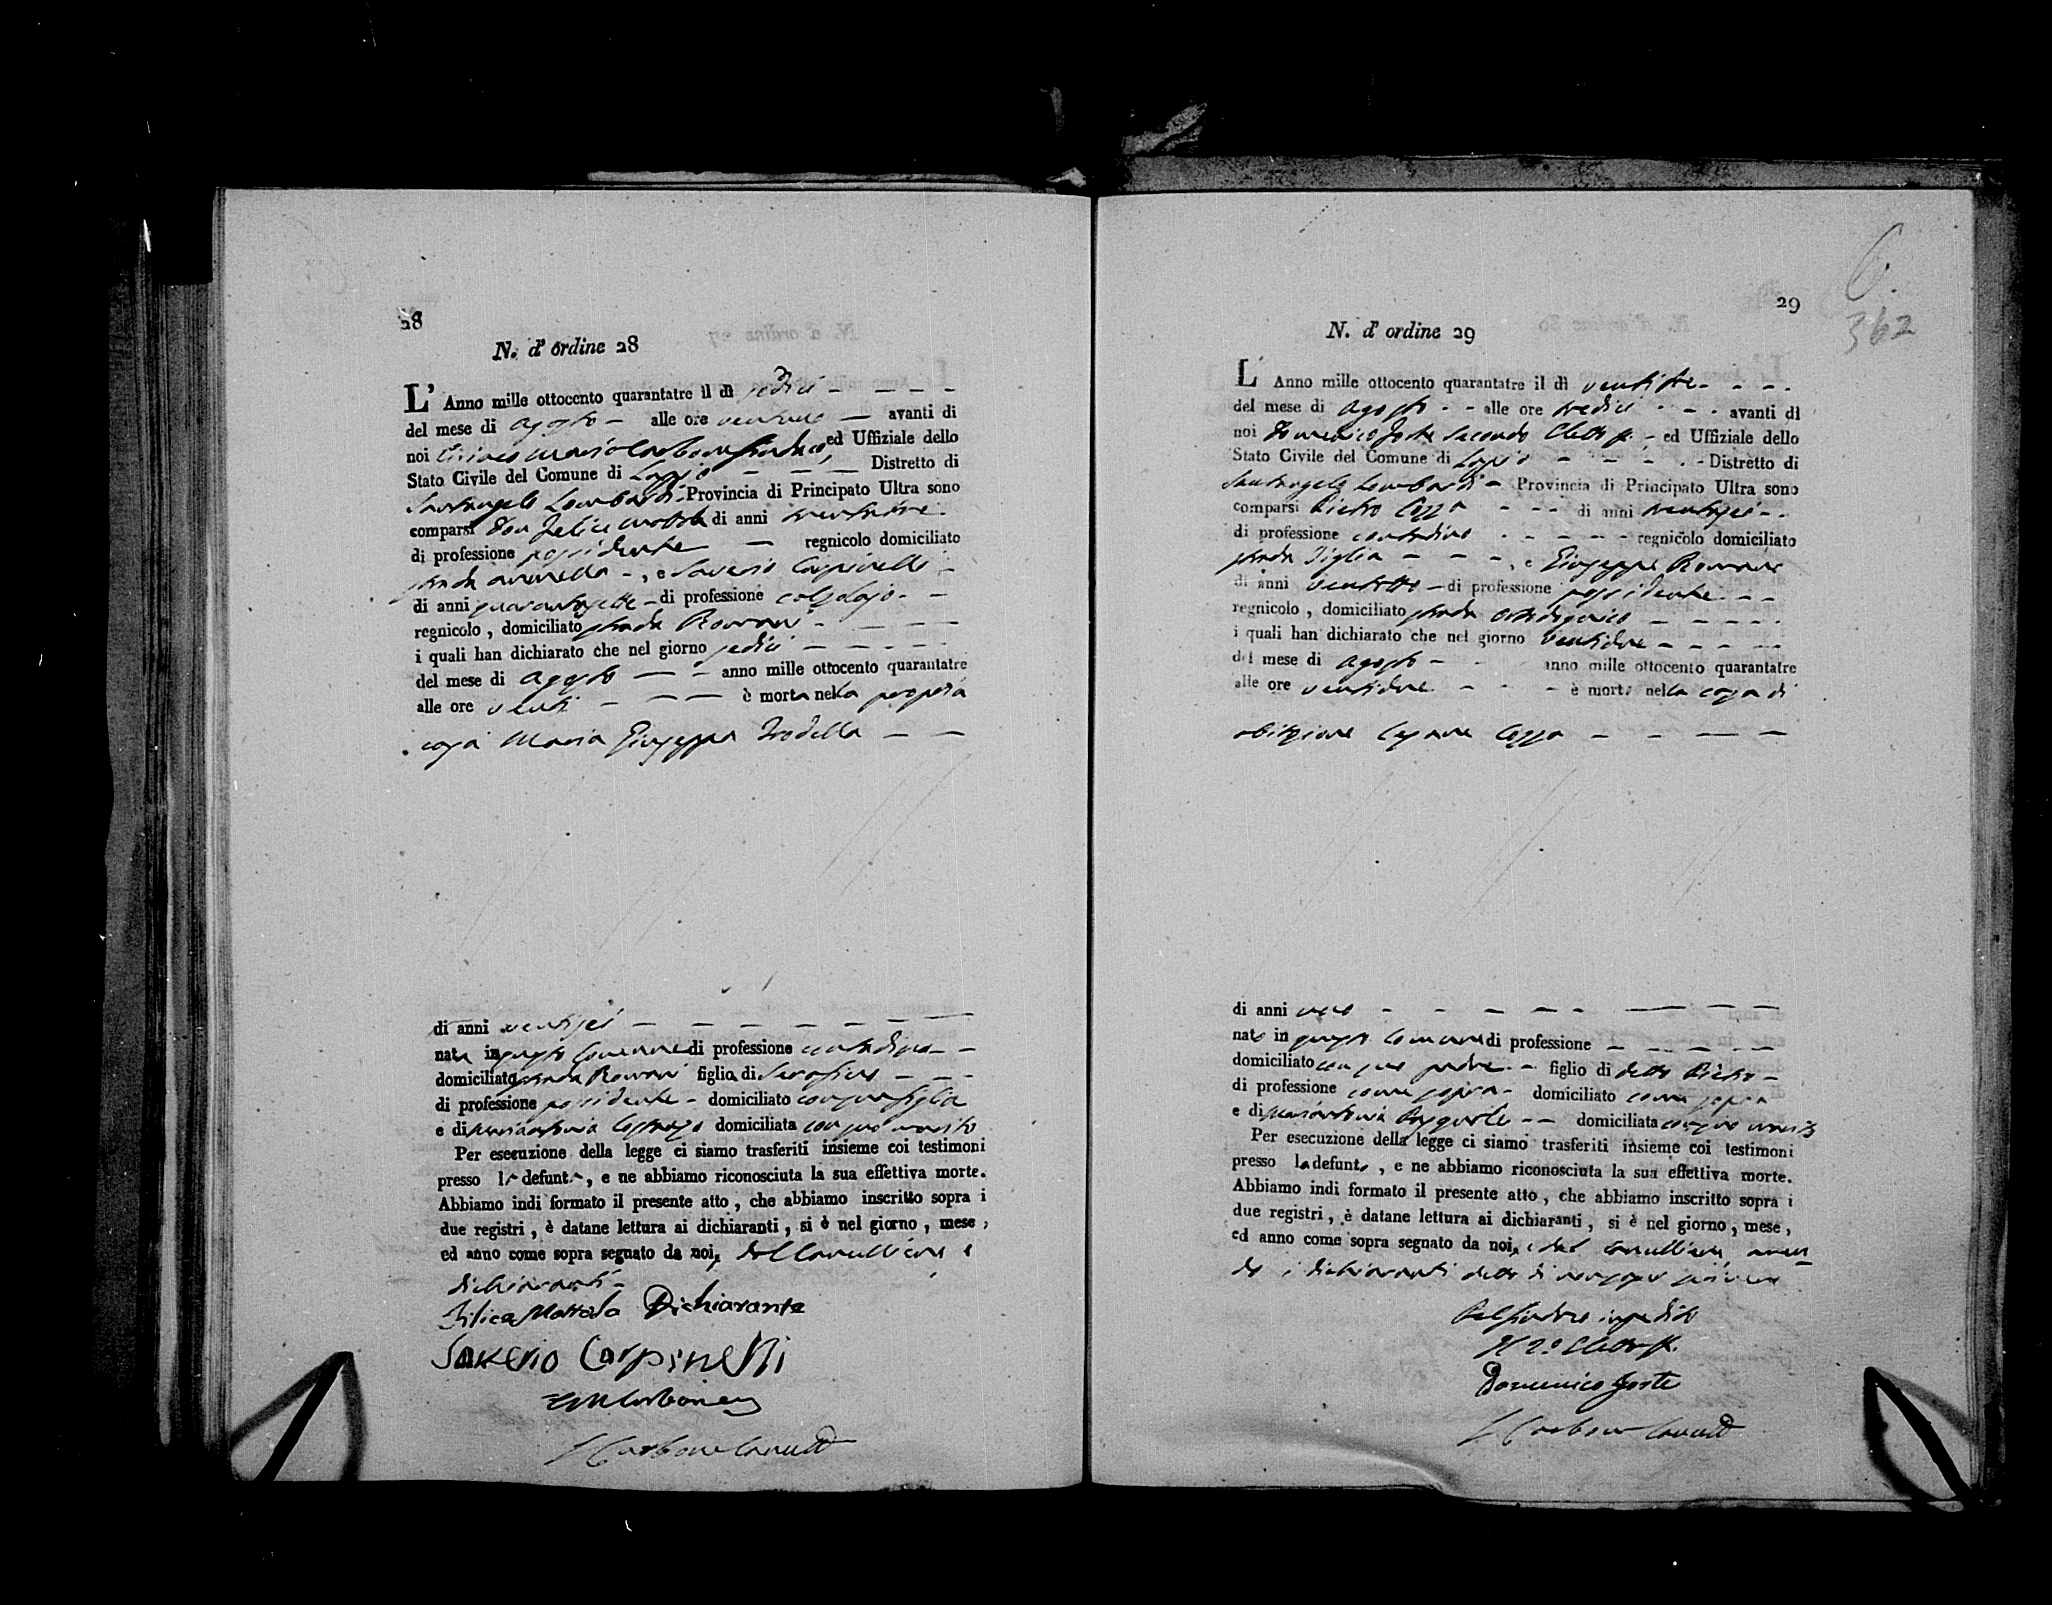 28
N. d' ordine 28
L' Anno mille ottocento quarantatre il dì sedici
del mese di agosto alle ore ventuno avanti di
noi Ciriaco Maria Carbone Sindaco, ed Uffiziale dello
Stato Civile del Comune di Lapio Distretto di
Santangelo Lombardi Provincia di Principato Ultra sono
comparsi Don Felice Mottola di anni trentatre
di professione possidente regnicolo domiciliato
strada , e Saverio Carpinelli
di anni quarantasette di professione calzolajo
regnicolo , domiciliato strada Romani
i quali han dichiarato che nel giorno sedici
del mese di agosto anno mille ottocento quarantatre
alle ore venti è morta nella propria
casa Maria Giuseppa Trodella
di anni ventisei
nata in questo Comune di professione contadina
domiciliata strada Romani figlia di Serafino
di professione possidente domiciliato con sua figlia
e di Mariantonia domiciliata con suo marito
Per esecuzione della legge ci siamo trasferiti insieme coi testimoni
presso la defunta, e ne abbiamo riconosciuta la sua effettiva morte.
Abbiamo indi formato il presente atto , che abbiamo inscritto sopra i
due registri , è datane lettura ai dichiaranti , si è nel giorno , mese ,
ed anno come sopra segnato da noi, dal Cancelliere e
dichiaranti
Felice Mottola Dichiarante
Saverio Carpinelli
CMCarbone
Carbone Canc
29
362
N. d' ordine 29
L' Anno mille ottocento quarantatre il dì ventitre
del mese di agosto alle ore tredici avanti di
noi Domenico Forte Secondo Eletto ed Uffiziale dello
Stato Civile del Comune di Lapio Distretto di
Santangelo Lombardi Provincia di Principato Ultra sono
comparsi Pietro Cozza di anni trentasei
di professione contadino regnicolo domiciliato
strada Tiglia , e Giuseppe Romano
di anni ventotto di professione possidente
regnicolo , domiciliato strada
i quali han dichiarato che nel giorno ventidue
del mese di agosto anno mille ottocento quarantatre
alle ore ventidue è morto nella casa di
abitazione Cesare Cozza
di anni uno
nato in questo Comune di professione
domiciliato con suo padre figlio di detto Pietro
di professione come sopra domiciliato come sopra
e di Mariantonia Pasquale domiciliata con suo marito
Per esecuzione della legge ci siamo trasferiti insieme coi testimoni
presso lo defunto , e ne abbiamo riconosciuta la sua effettiva morte.
Abbiamo indi formato il presente atto , che abbiamo inscritto sopra i
due registri , è datane lettura ai dichiaranti , si è nel giorno , mese ,
ed anno come sopra segnato da noi, e dal cancelliere aven
do i dichiaranti detto di non saper scrivere
Pel Sindaco impedito
Il 2.º Eletto
Domenico Forte
Carbone Canc